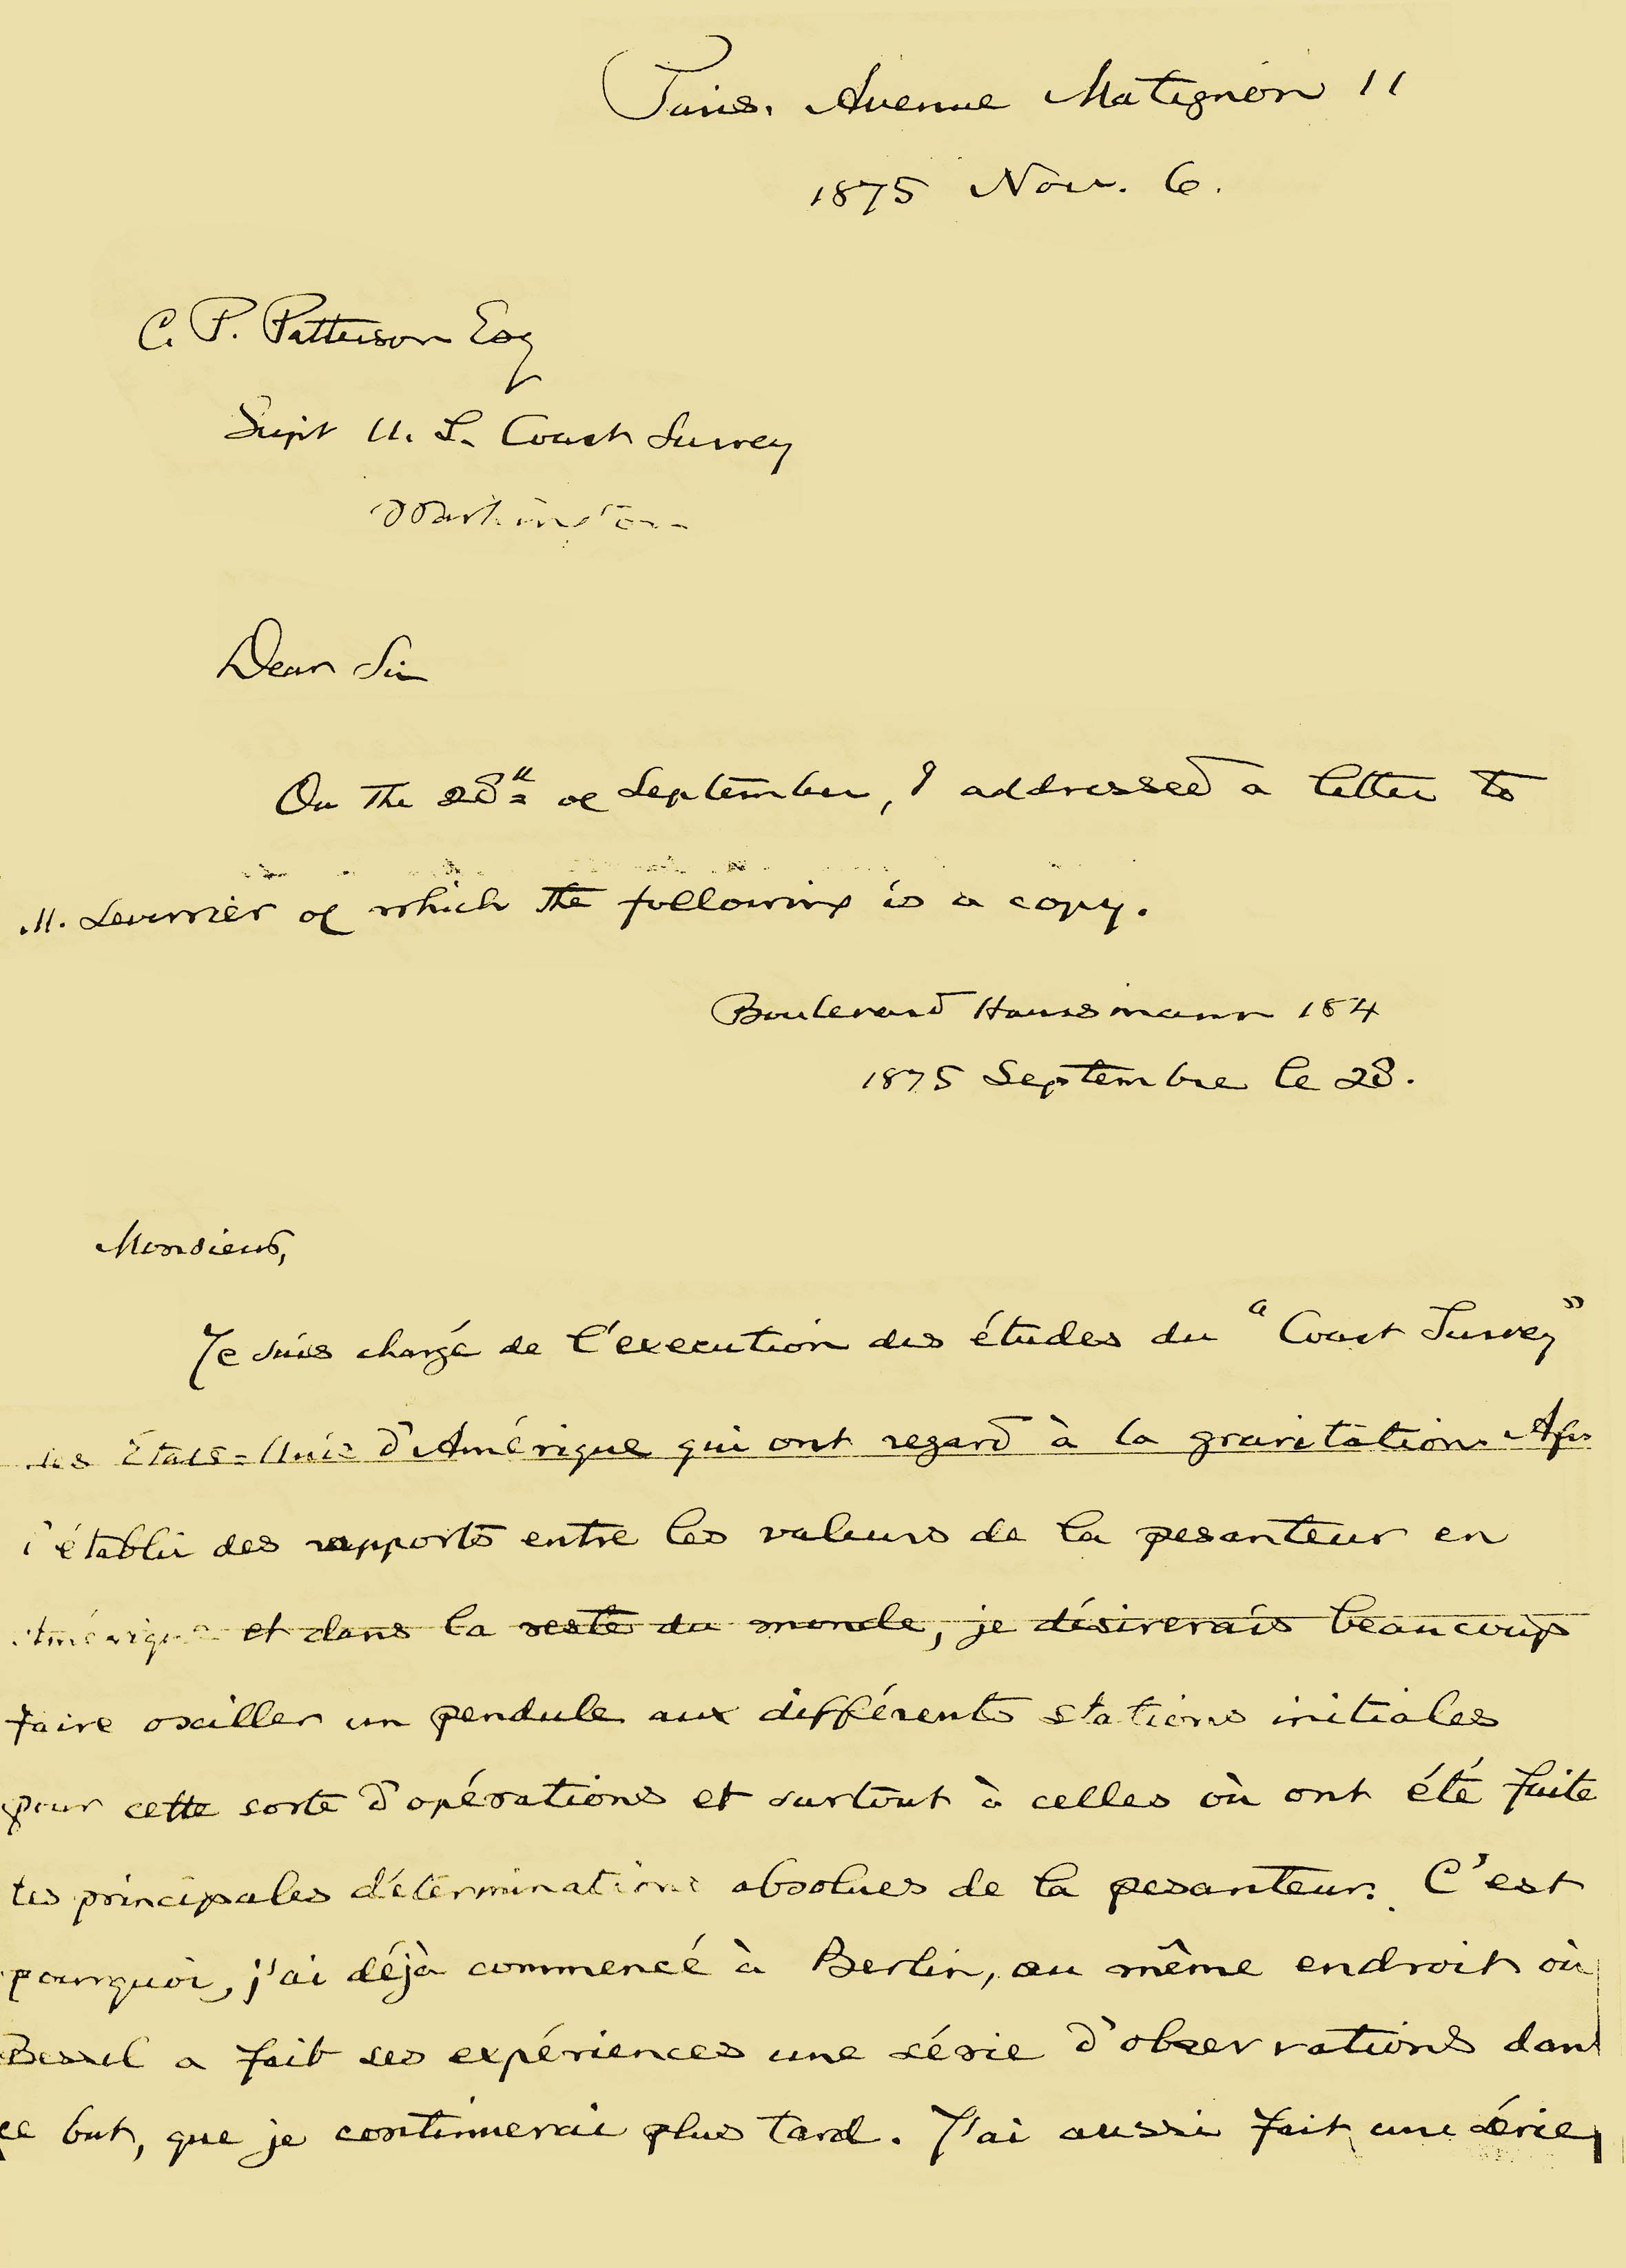 Paris. Avenue Matignon 11
1875 Nov. 6.
C. P. Patterson Esq
Supt U. S. Coast Survey
Washington
Dear Sir
On the 28th of September, I addressed a letter to
M. Leverrier of which the following is a copy.
Boulevard Haussmann 184
1875 Septembre le 28.
Monsieur,
Je suis chargé de l'execution des études du "Coast Survey"
des États-Unis d'Amérique qui ont regard à la gravitation. Afin
d'établir des rapports entre les valeurs de la pesanteur en
Amérique et dans la reste du monde, je désirerais beaucoup
faire osciller un pendule aux différents stations initiales
pour cette sorte d'opérations et surtout à celles où ont été faite
les principales déterminations absolues de la pesanteur. C'est
pourquoi, j'ai déjà commencé à Berlin, au même endroit où
Bessel a fait ses expériences une série d'observations dans
ce but, que je continuerai plus tard. J'ai aussi fait une série